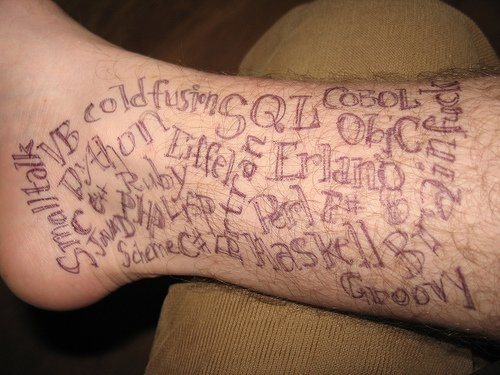 coldfusion
SQL
COBOL
ObjC
VB
Python
Eiffel
Erlang
Brainfuck
Smalltalk
C
C#
Ruby
Java
PHP
LISP
Fortran
Perl
F#
Scheme
C++
Haskell
Groovy